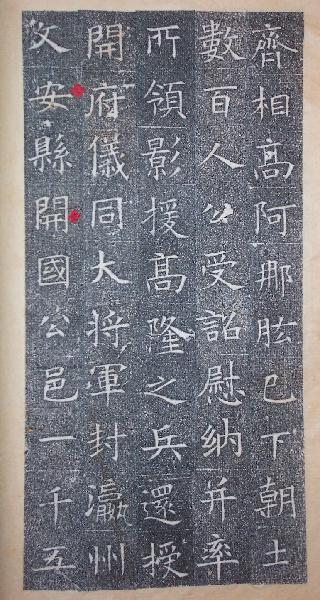 齊相高阿那肱已下朝士
數百人公受詔慰納并率
所領影援高隆之兵還授
開府儀同大将軍封瀛州
文安縣開國公邑一千五